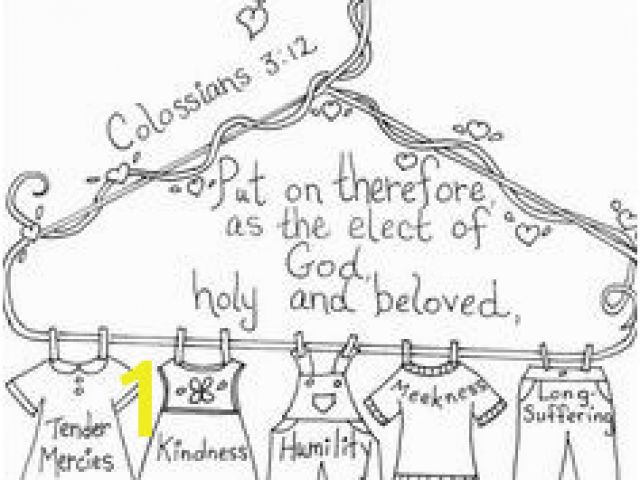 Colossians 3:12
Put on therefore,
as the elect of
God,
holy and beloved,
1
Tender
Mercies
Kindness
Humility
Meekness
Long-
Suffering